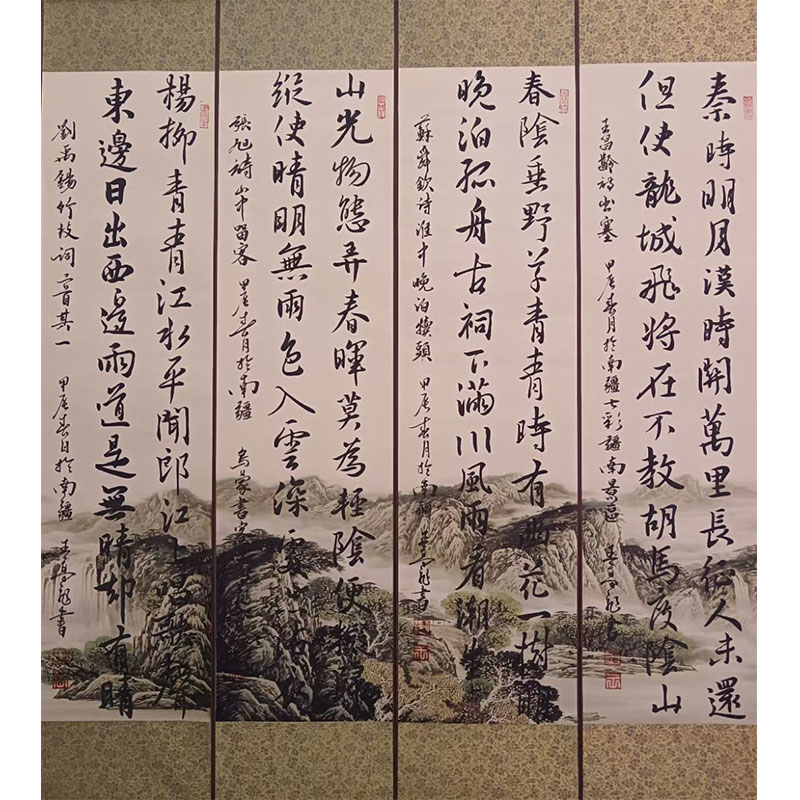 秦時明月漢時關萬里長征人未還
但使龍城飛將在不教胡馬度陰山
王昌齡詩出塞 甲辰春月於南疆七彩疆南景區
春陰垂野草青青時有幽花一樹明
晚泊孤舟古祠下滿川風雨看潮生
蘇舜欽诗淮中晚泊犢頭 甲辰春月於南疆 書
山光物態弄春暉莫為輕陰便擬歸
縱使晴明無雨色入雲深處
張旭詩山中留客 甲辰春月於南疆 烏蒙書客
楊柳青青江水平聞郎江上唱歌聲
東邊日出西邊雨道是無晴却有晴
劉禹錫竹枝詞二首其一 甲辰春日於南疆 書